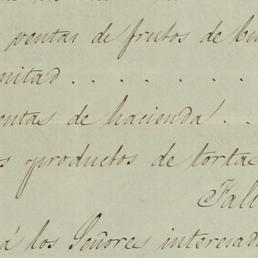 ventas de frutos de
mitad . . . . . . .
entas de hacienda . .
s productos de torta
Fal
á los Señores interesad